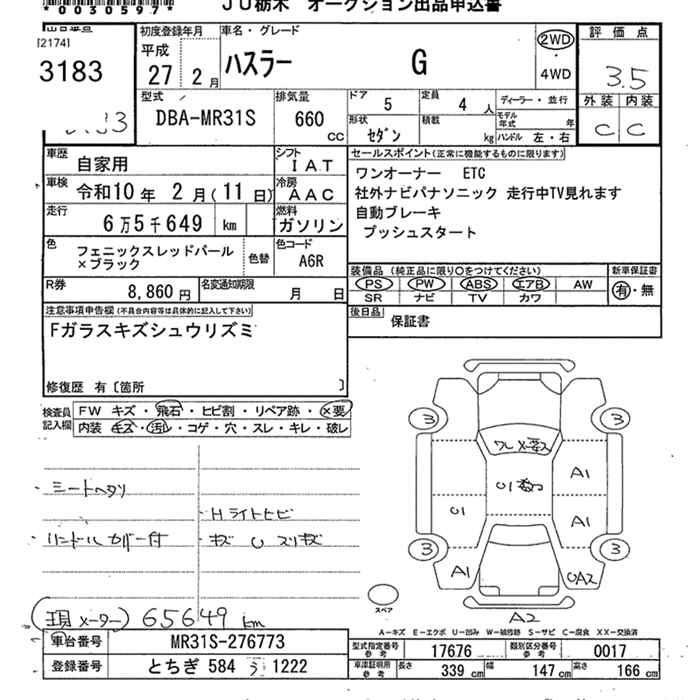 *0030597*
JU栃木 オークション出品申込書
[2174]
3183
初度登録年月
平成
27 2月
車名・グレード
ハスラー G
2WD
・
4WD
評価点
3.5
外装 内装
C C
型式
DBA-MR31S
排気量
660
cc
ドア 5
定員 4 人
形状 セダン
積載 kg
ディーラー・並行
モデル年式 年
ハンドル 左・右
車歴
自家用
車検
令和10年 2月(11日)
走行
6万5千649 km
シフト
IAT
冷房
AAC
燃料
ガソリン
色
フェニックスレッドパール
×ブラック
色替
色コード
A6R
R券
8,860円
名変通知期限
月 日
セールスポイント(正常に機能するものに限ります)
ワンオーナー ETC
社外ナビパナソニック 走行中TV見れます
自動ブレーキ
プッシュスタート
装備品(純正品に限り○をつけてください)
PS PW ABS エアB AW
SR ナビ TV カワ
新車保証書
有・無
後日品
保証書
注意事項申告欄(不具合内容等は具体的に記入して下さい)
Fガラスキズシュウリズミ
修復歴 有〔箇所 〕
検査員
記入欄
FW キズ・飛石・ヒビ割・リペア跡・×要
内装 キズ・汚レ・コゲ・穴・スレ・キレ・破レ
・シートヘタリ
・Hライトヒビ
・ハンドルカバー付
・キズ U スリキズ
(現メーター) 65649 km
3
3
3
3
A1
A1
U1
A1
UA2
A2
スペア
A-キズ E-エクボ U-凹み W-補修跡 S-サビ C-腐食 XX-交換済
車台番号
MR31S-276773
登録番号
とちぎ 584 う 1222
型式指定番号
参考
17676
類別区分番号
参考
0017
車庫証明用
参考
長さ 339 cm
幅 147 cm
高さ 166 cm